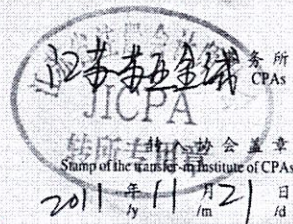 江苏苏亚金诚 事务所
CPAs
JICPA
转所专用章
转入协会盖章
Stamp of the transfer-in Institute of CPAs
2011 年 11 月 21 日
/y /m /d